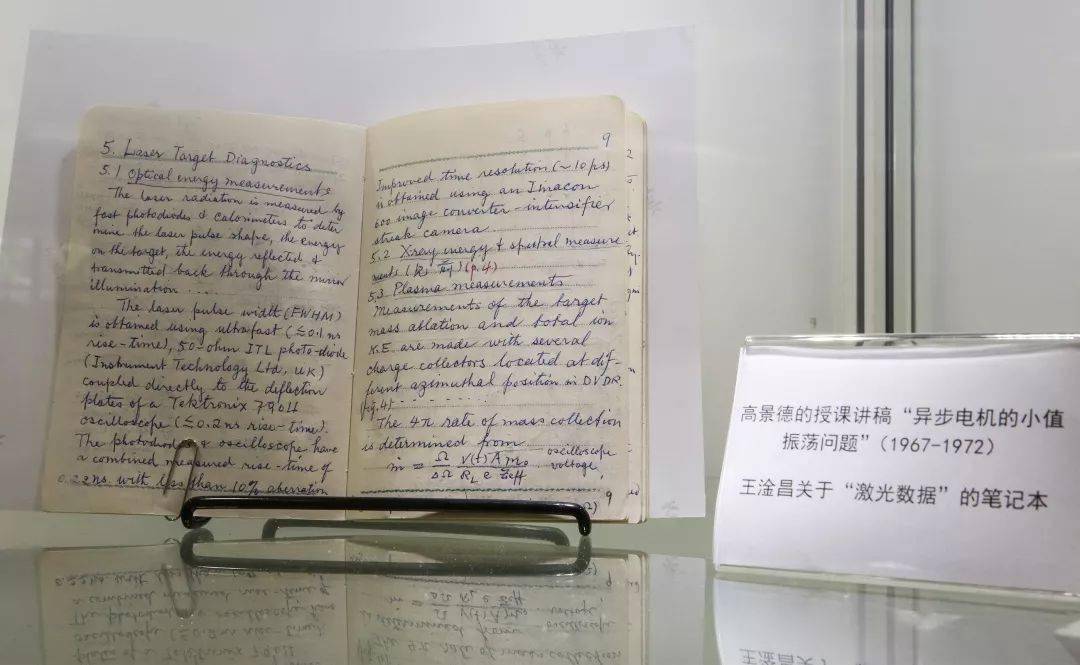 5. Laser Target Diagnostics
5.1 Optical energy measurements
The laser radiation is measured by
fast photodiodes & calorimeters to deter
mine the laser pulse shape, the energy
on the target, the energy reflected &
transmitted back through the mirror
illumination ....
The laser pulse width (FWHM)
is obtained using ultrafast (≦0.1 ns
rise-time), 50-ohm ITL photo-diode
(Instrument Technology Ltd, UK)
coupled directly to the deflection
plates of a Tektronix 7904
oscilloscope (≦0.2 ns rise-time).
The photodiode & oscilloscope have
a combined measured rise-time of
0.22 ns with less than 10% aberration
9
Improved time resolution (~10 ps)
is obtained using an Imacon
600 image converter-intensifier
streak camera.
5.2 Xray energy & spectral measure
ments (p.4)
5.3 Plasma measurements
Measurements of the target
mass ablation and total ion
K.E. are made with several
charge collectors located at dif-
ferent azimuthal position in DVDR
(fig.4) - - - - - - -
The 4π rate of mass collection
is determined from
oscilloscope
ṁ = Ω/ΔΩ V(t)/R_L A m₀/e Z_eff
voltage,
9
高景德的授课讲稿“异步电机的小值
振荡问题”(1967-1972)
王淦昌关于“激光数据”的笔记本